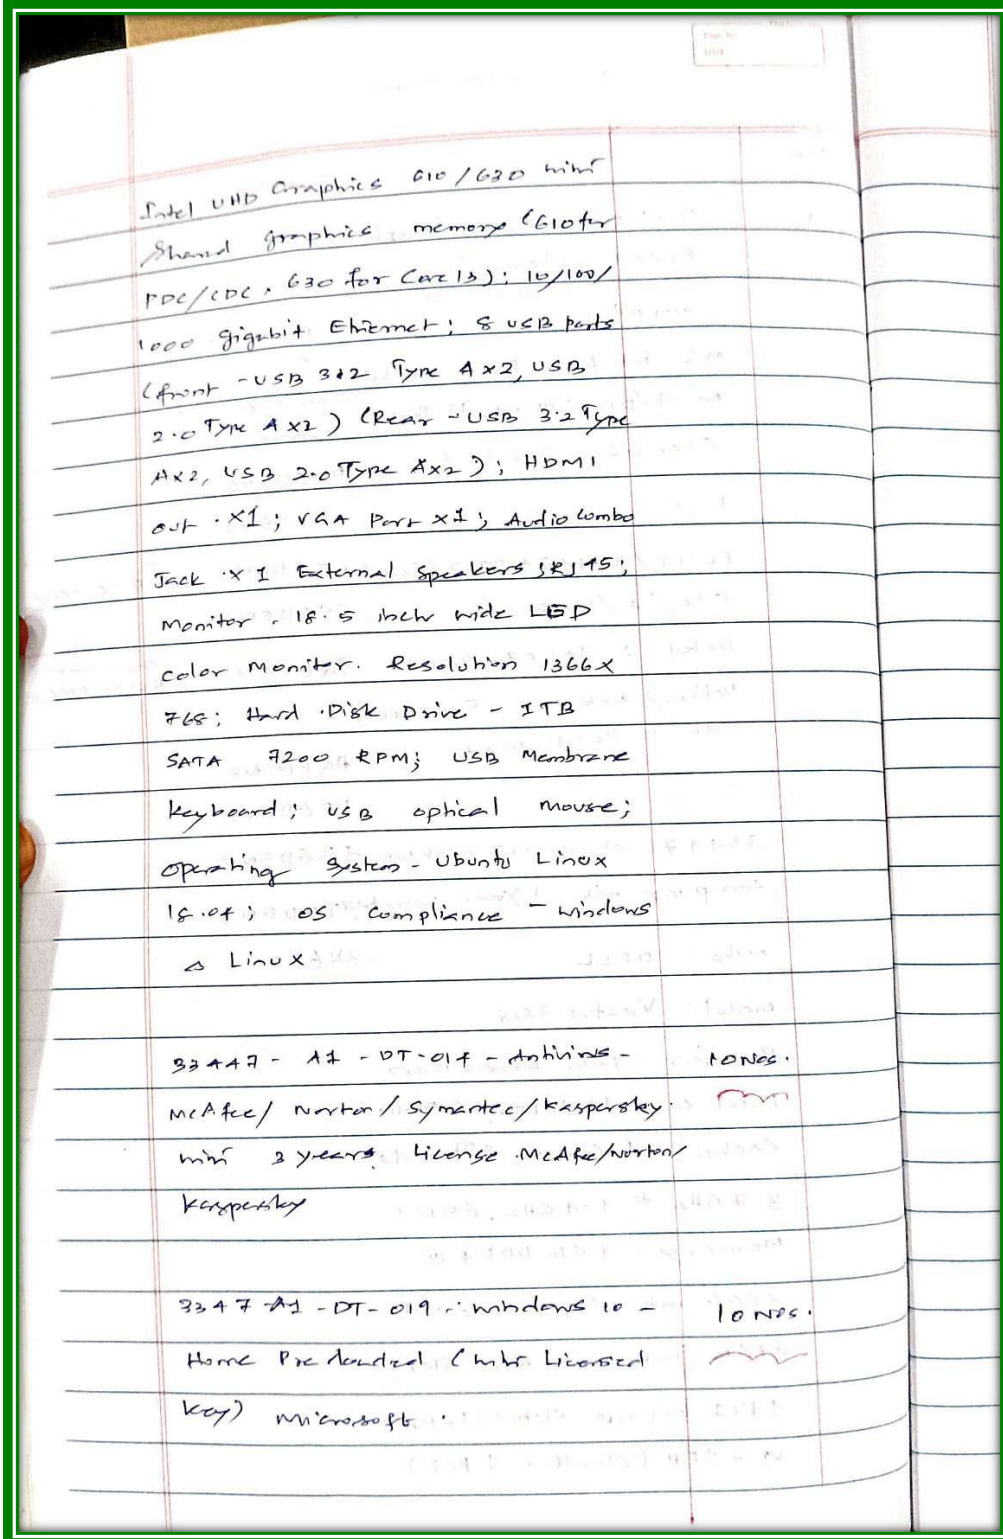 Intel UHD Graphics 610/630 with
Shared graphics memory (610 for
PDC/CDC, 630 for Core I3); 10/100/
1000 Gigabit Ethernet; 8 USB ports
(front - USB 3.2 Type A x2, USB
2.0 Type A x2) (Rear - USB 3.2 Type
A x2, USB 2.0 Type A x2); HDMI
out x1; VGA Port x1; Audio Combo
Jack x 1 External Speakers; RJ45;
Monitor, 18.5 inch wide LED
color Monitor. Resolution 1366 x
768; Hard Disk Drive - 1TB
SATA 7200 RPM; USB Membrane
Keyboard; USB optical mouse;
operating system - Ubuntu Linux
18.04; OS compliance - windows
& Linux
33447 - A1 - DT - 014 - Antivirus - 10 Nos.
McAfee/ Norton / Symantec/Kaspersky.
with 3 years License McAfee/Norton/
Kaspersky
3347 - A1 - DT - 019 - windows 10 - 10 Nos.
Home Pre loaded (with Licensed
Key) Microsoft.